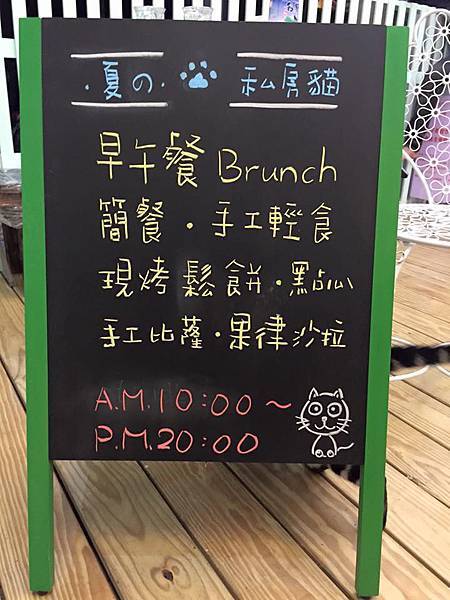 ·夏の· 私房貓
早午餐 Brunch
簡餐·手工輕食
現烤鬆餅·點心
手工比薩·果律沙拉
A.M.10:00~
P.M.20:00